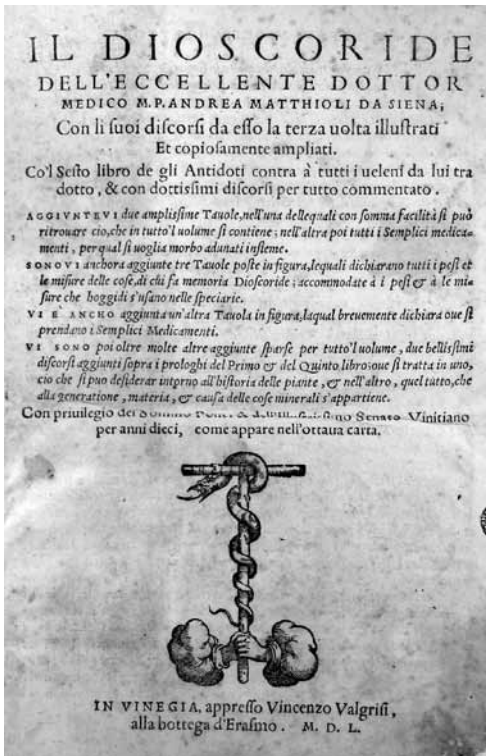 IL DIOSCORIDE
DELL'ECCELLENTE DOTTOR
MEDICO M.P. ANDREA MATTHIOLI DA SIENA;
Con li suoi discorsi da esso la terza uolta illustrati
Et copiosamente ampliati.
Co'l Sesto libro de gli Antidoti contra à tutti i ueleni da lui tra
dotto, & con dottissimi discorsi per tutto commentato.
AGGIVNTEVI due amplissime Tauole, nell'una dellequali con somma facilità si può
ritrouare cio, che in tutto'l uolume si contiene; nell'altra poi tutti i Semplici medica-
menti, per qual si uoglia morbo adunati insieme.
SONOVI anchora aggiunte tre Tauole poste in figura, lequali dichiarano tutti i pesi et
le misure delle cose, di chi fa memoria Dioscoride; accommodate à i pesi & à le mi=
sure che hoggidi s'usano nelle speciarie.
VI E ANCHO aggiunta un'altra Tauola in figura, laqual breuemente dichiara oue si
prendano i Semplici Medicamenti.
VI SONO poi oltre molte altre aggiunte sparse per tutto'l uolume, due bellissimi
discorsi aggiunti sopra i prologhi del Primo & del Quinto libro; oue si tratta in uno,
cio che si puo desiderar intorno all'historia delle piante, & nell'altro, quel tutto, che
alla generatione, materia, & causa delle cose minerali s'appartiene.
Con priuilegio del Senato Vinitiano
per anni dieci, come appare nell'ottaua carta.
IN VINEGIA, appresso Vincenzo Valgrisi,
alla bottega d'Erasmo. M. D. L.